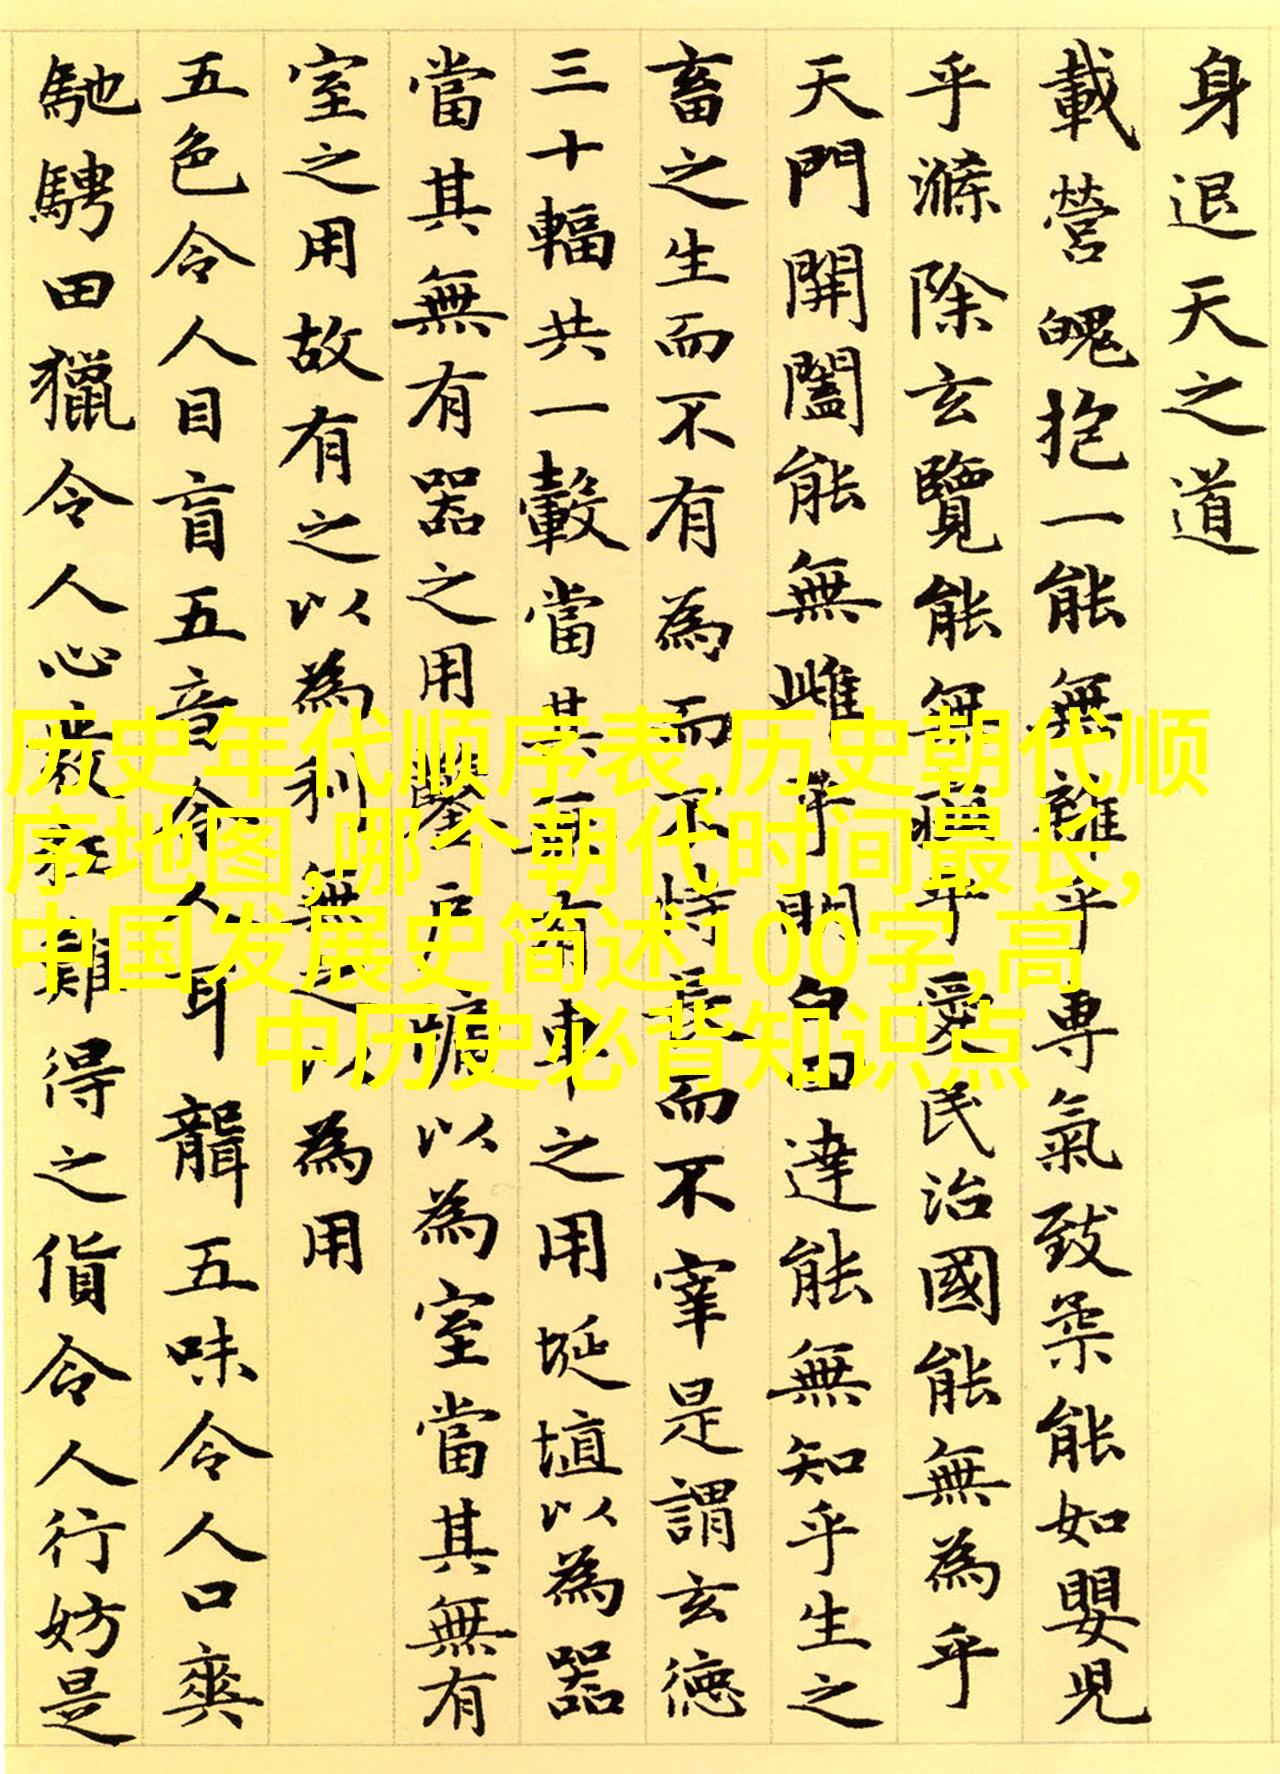 身退天之道
載營魄抱一能無離乎專氣致柔能如嬰兒
乎滌除玄覽能無疵乎愛民治國能無為乎
天門開闔能無雌乎明白四達能無知乎生之
畜之生而不有為而不恃長而不宰是謂玄德
三十輻共一轂當其無有車之用埏埴以為器
當其無有器之用鑿戶牖以為室當其無有
室之用故有之以為利無之以為用
五色令人目盲五音令人耳聾五味令人口爽
馳騁田獵令人心發狂難得之貨令人行妨是
历史年代顺序表,历史朝代顺
序地图,哪个朝代时间最长,
中国发展史简述100字,高
中历史必背知识点